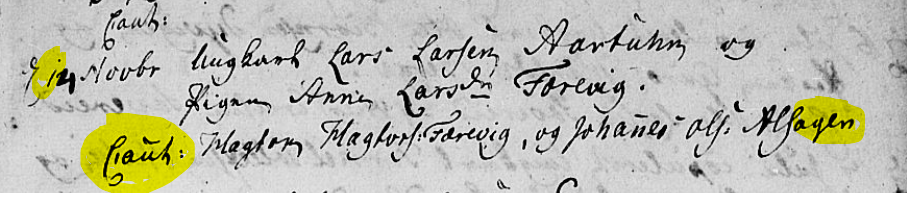 Caut:
14 Novbr Ungkarl Lars Larsen Aartuhn og
Pigen Anne Larsdn Farevig.
Caut: Hagton Hagtors: Farevig, og Johannes ols: